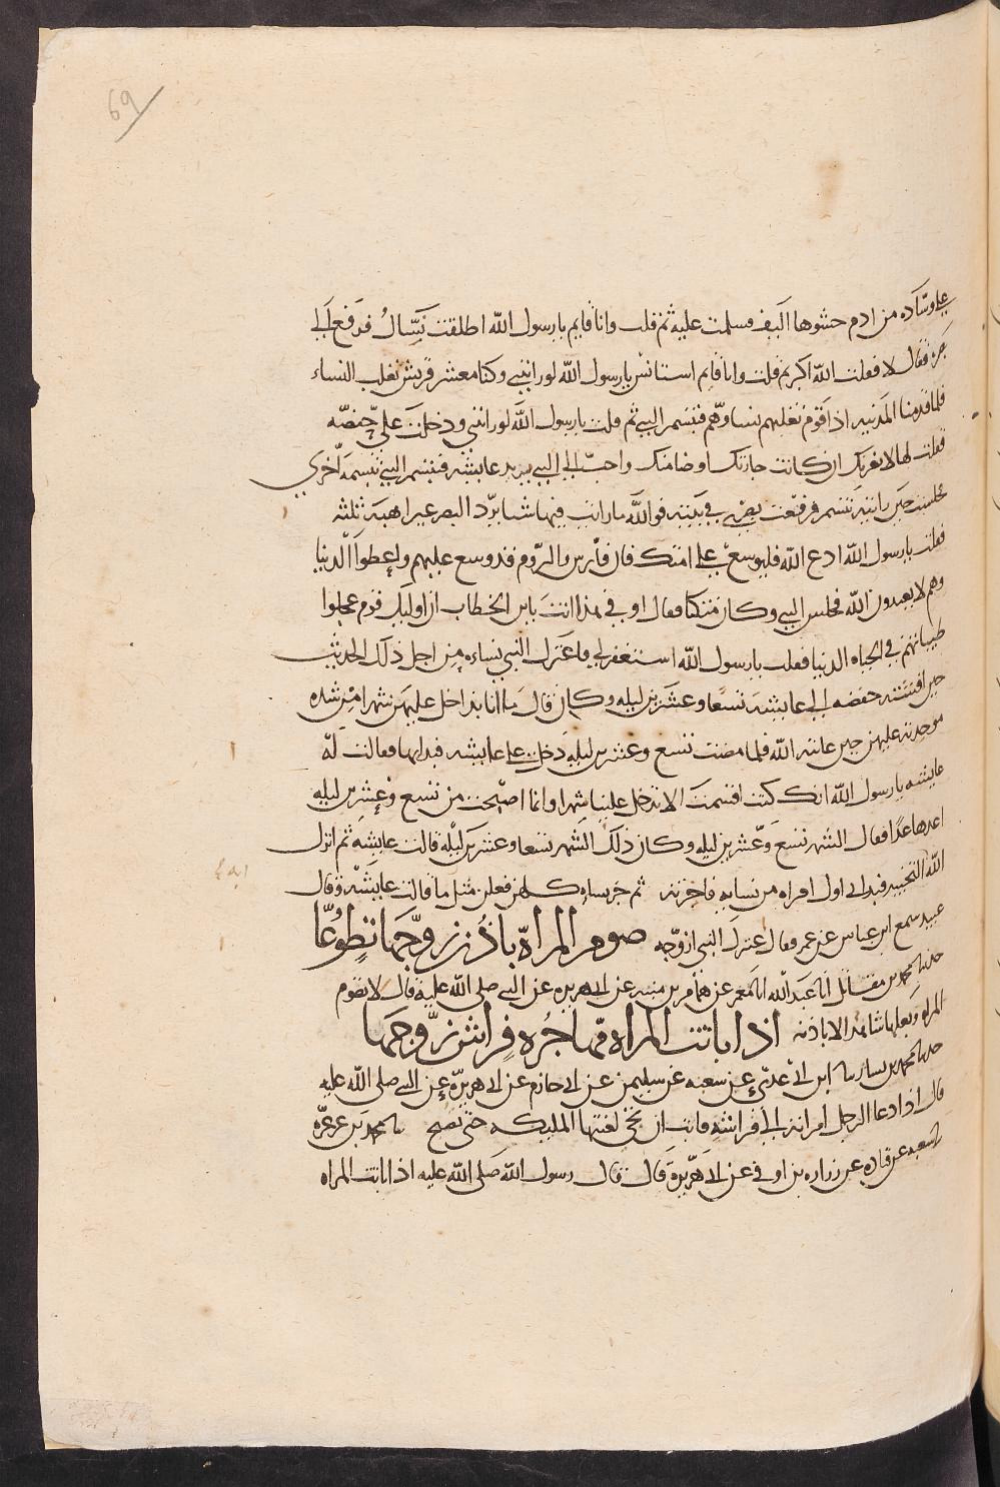 69
على وسادة من ادم حشوها ليف فسلمت عليه ثم قلت وانا قايم يا رسول الله اطلقت نساك فرفع الي
بصره فقال لا فقلت الله اكبر ثم قلت وانا قايم استانس يا رسول الله لو رايتني وكنا معشر قريش نغلب النساء
فلما قدمنا المدينه اذا قوم تغلبهم نساوهم فتبسم النبي ثم قلت يا رسول الله لو رايتني ودخلت على حفصه
فقلت لها لا يغرنك ان كانت جارتك اوضا منك واحب الى النبي يريد عايشه فتبسم النبي تبسمه اخرى
فجلست حين رايته تبسم فرفعت بصري في بيته فوالله ما رايت فيه شيا يرد البصر غير اهبه ثلثه
فقلت يا رسول الله ادع الله فليوسع على امتك فان فارس والروم قد وسع عليهم واعطوا الدنيا
وهم لا يعبدون الله فجلس النبي وكان متكيا فقال اوفي هذا انت يابن الخطاب ان اوليك قوم عجلوا
طيباتهم في الحياه الدنيا فقلت يا رسول الله استغفر لي فاعتزل النبي نساءه من اجل ذلك الحديث
حين افشته حفصه الى عايشه تسعا وعشرين ليله وكان قال ما انا بداخل عليهن شهرا من شده
موجدته عليهن حين عاتبه الله فلما مضت تسع وعشرين ليله دخل على عايشه فبدا بها فقالت له
عايشه يا رسول الله انك كنت اقسمت الا تدخل علينا شهرا وانما اصبحت من تسع وعشرين ليله
اعدها عدا فقال الشهر تسع وعشرين ليله وكان ذلك الشهر تسعا وعشرين ليله قالت عايشه ثم انزل
الله التخيير فبدا بي اول امراه من نسايه فاخترته ثم خير نساه كلهن فقلن مثل ما قالت عايشه وقال
عبيد سمع ابن عباس عن عمر فقال اعتزل النبي ازوجه صوم المراة باذن زوجها تطوعا
حدثنا محمد بن مقاتل انا عبد الله انا معمر عن همام بن منبه عن ابي هريره عن النبي صلى الله عليه قال لا تصوم
المراه وبعلها شاهد الا باذنه اذا باتت المراه مهاجره فراش زوجها
حدثنا محمد بن بشار نا ابن ابي عدي عن شعبه عن سليمن عن ابي حازم عن ابي هريرة عن النبي صلى الله عليه
قال اذا دعا الرجل امراته الى فراشه فابت ان تجي لعنتها المليكه حتى تصبح نا محمد بن عرعرة
نا شعبه عن قتاده عن زراره بن اوفى عن ابي هريرة قال قال رسول الله صلى الله عليه اذا باتت المراه